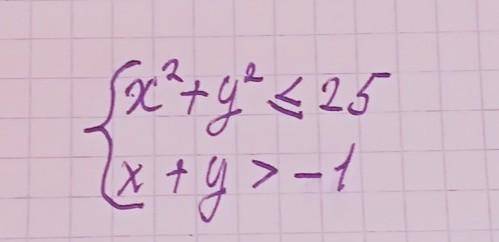 x² + y² ≤ 25
x + y > -1